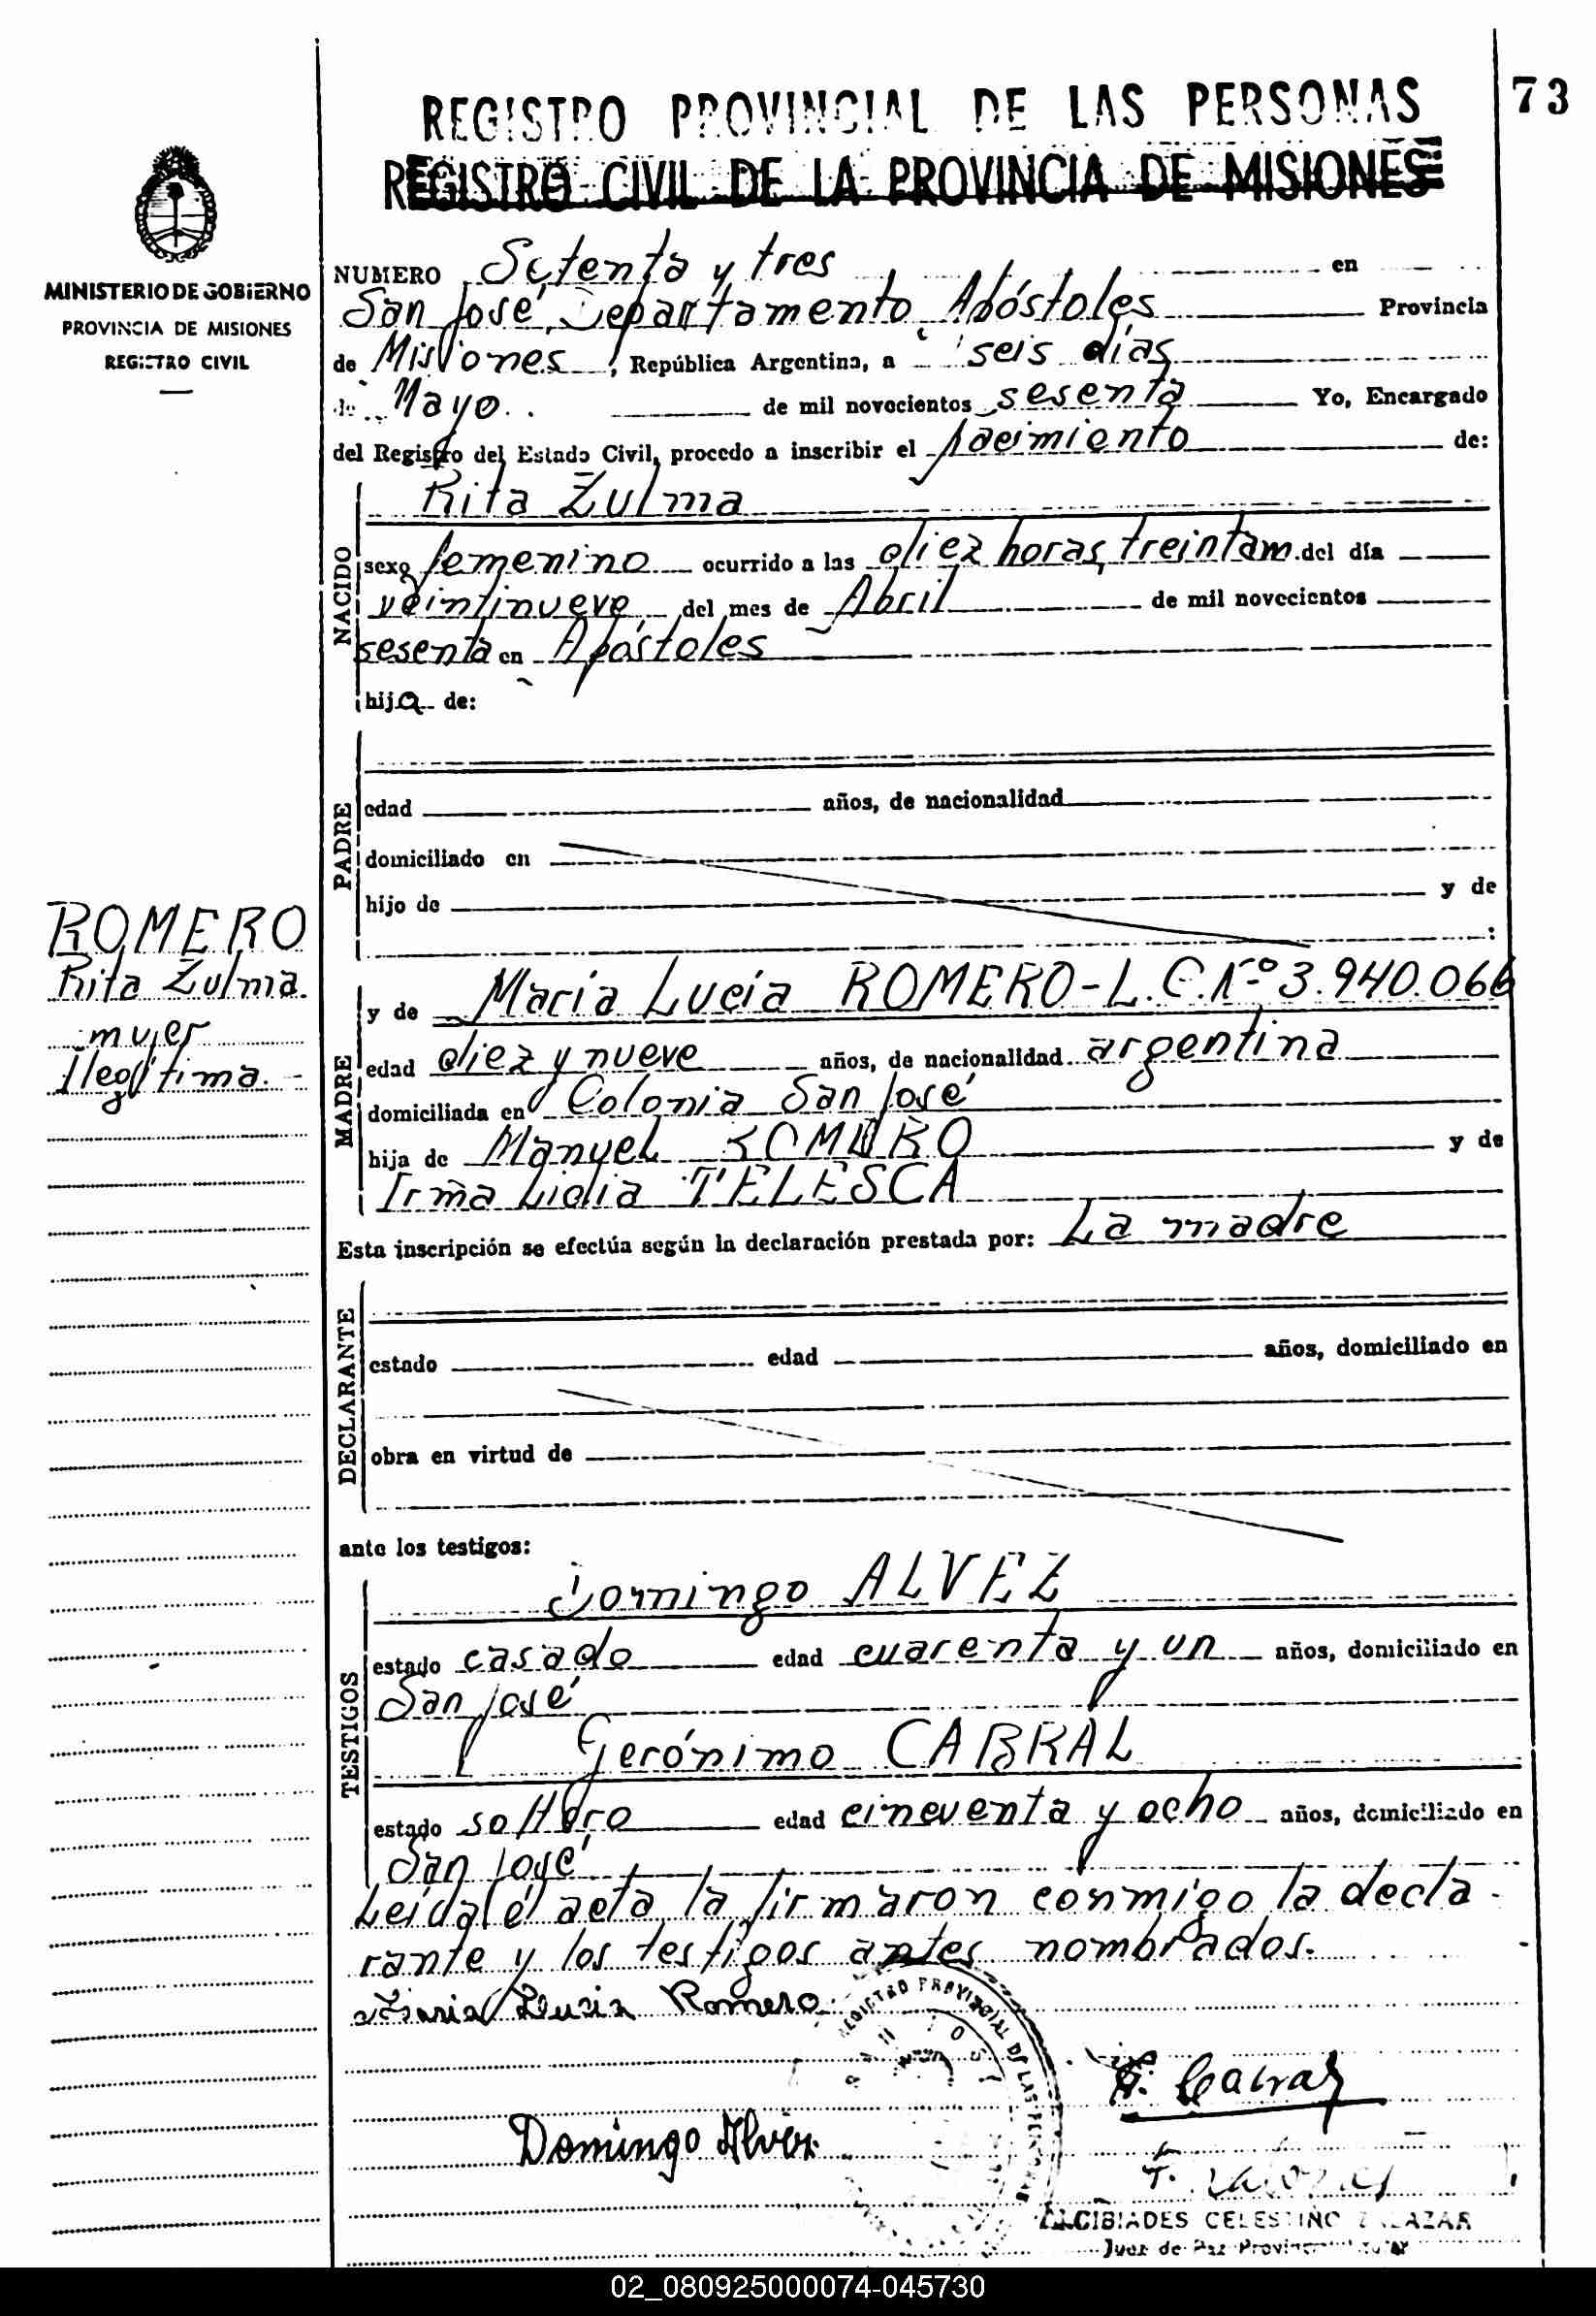 73
REGISTRO PROVINCIAL DE LAS PERSONAS
REGISTRO CIVIL DE LA PROVINCIA DE MISIONES
MINISTERIO DE GOBIERNO
PROVINCIA DE MISIONES
REGISTRO CIVIL
NUMERO Setenta y tres en
San José, Departamento Apóstoles Provincia
de Misiones, República Argentina, a seis días
de Mayo de mil novecientos sesenta Yo, Encargado
del Registro del Estado Civil, procedo a inscribir el nacimiento de:
NACIDO
Rita Zulma
sexo femenino ocurrido a las diez horas, treinta m. del día
veintinueve del mes de Abril de mil novecientos
sesenta en Apóstoles
hija de:
PADRE
edad años, de nacionalidad
domiciliado en
hijo de y de
:
ROMERO
Rita Zulma.
mujer
Ilegítima.-
MADRE
y de María Lucía ROMERO-L.C.Nº 3.940.066
edad diez y nueve años, de nacionalidad argentina
domiciliada en Colonia San José
hija de Manuel ROMERO y de
Irma Lidia TELESCA
Esta inscripción se efectúa según la declaración prestada por: La madre
DECLARANTE
estado edad años, domiciliado en
obra en virtud de
ante los testigos:
TESTIGOS
Domingo ALVEZ
estado casado edad cuarenta y un años, domiciliado en
San José
Gerónimo CABRAL
estado soltero edad cincuenta y ocho años, domiciliado en
San José
Leída el acta, la firmaron conmigo la decla-
rante y los testigos antes nombrados.
Maria Lucia Romero
REGISTRO PROVINCIAL DE LAS PERSONAS
G. Cabral
Domingo Alvez
ALCIBIADES CELESTINO ZALAZAR
Juez de Paz
02_080925000074-045730